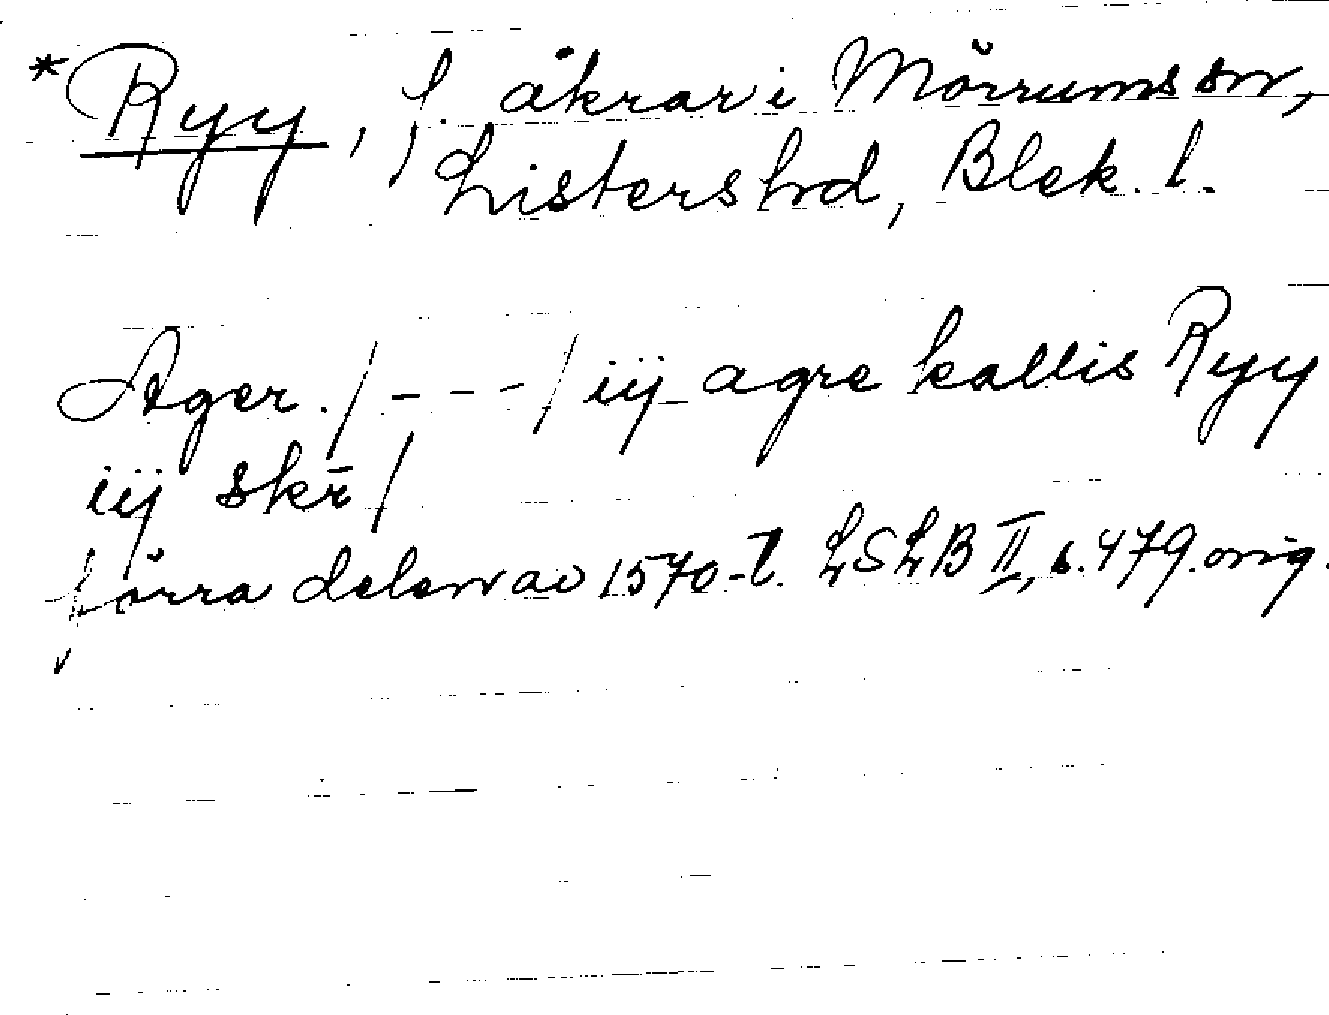 *Ryy, f. åkrar i Mörrums sn,
Listers hd, Blek. l.
Ager. / - - - / iij agre kallis Ryy
iij skr̄ /
förra delen av 1570-t. LSLB II, s. 479. orig.